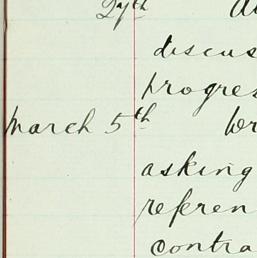 27th
discus
progres
March 5th Wr
asking
referen
contra